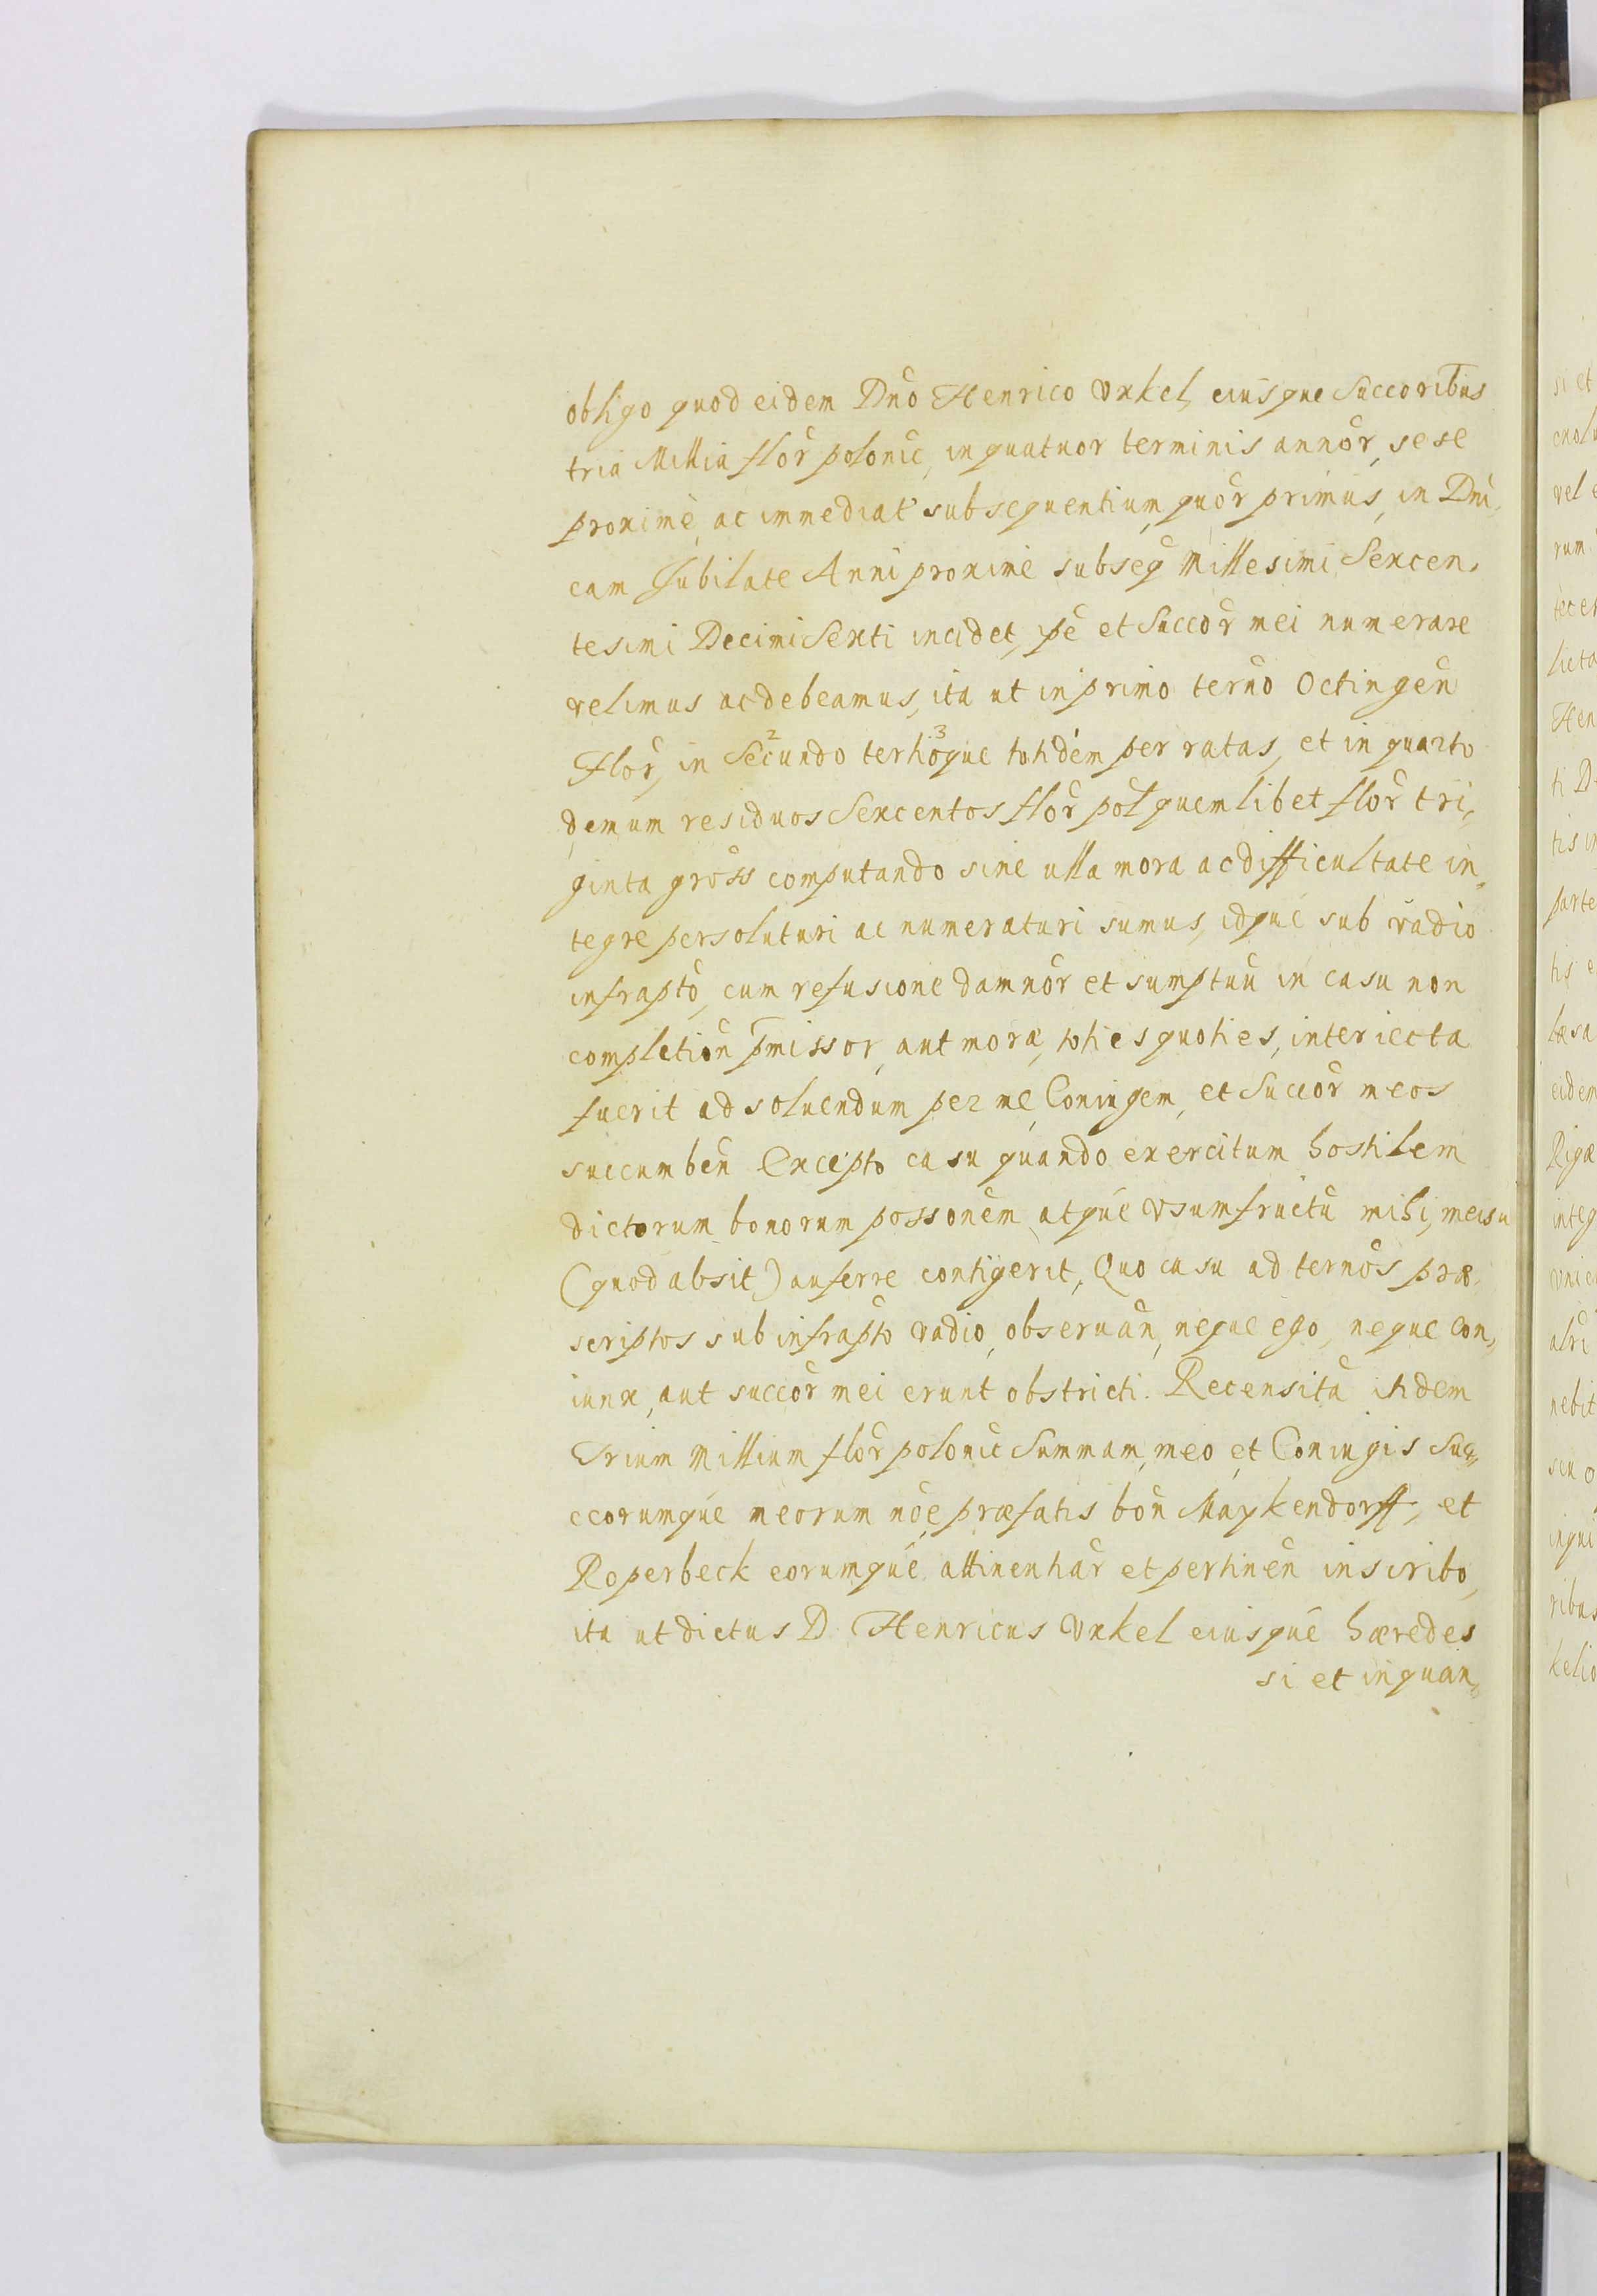 obligo quod eidem Dno Henrico Vxkel, eiusque Succoribus
tria Millia flor polonic, in quatuor terminis annor, sese
proxime, ac immediat subsequentium, quor primus, in Dni,
cam Jubilate Anni proxime subseq Millesimi, Sexcen,
tesimi Decimi Sexti incidet, pe et Succor mei numerare
velimus ac debeamus, ita ut in primo termo Octingen
Flor, in Secundo 2 tertioque 3 totidem per ratas, et in quarto
demum residuos Sexcentos flor pol quemlibet flor tri,
ginta gross computando sine ulla mora ac difficultate in,
tegre persoluturi ac numeraturi sumus, idque sub vadio
infrapto, cum refusione damnor et sumptuu in casu non
pletion pmissor, aut moræ, toties quoties, interiecta
fuerit ad soluendum per me, Coniugem, et Succor meos
succumben Excepto casu quando exercitum hostilem
dictorum bonorum possonem atque vsumfructu mihi, meisu
(quod absit) auferre contigerit, Quo casu ad termos præ,
scriptos sub infrapto vadio, obseruan, neque ego, neque Con,
iunx, aut succor mei erunt obstricti. Recensita itidem
Trium Millium flor polonic Summam, meo et Coniugis Suc,
ccorumque meorum noe, præfatis bon Maykendorff, et
Roperbeck eorumque attinentiar et pertinen inscribo,
ita ut dictus D. Henricus Vxkel eiusque hæredes
si et inquan,